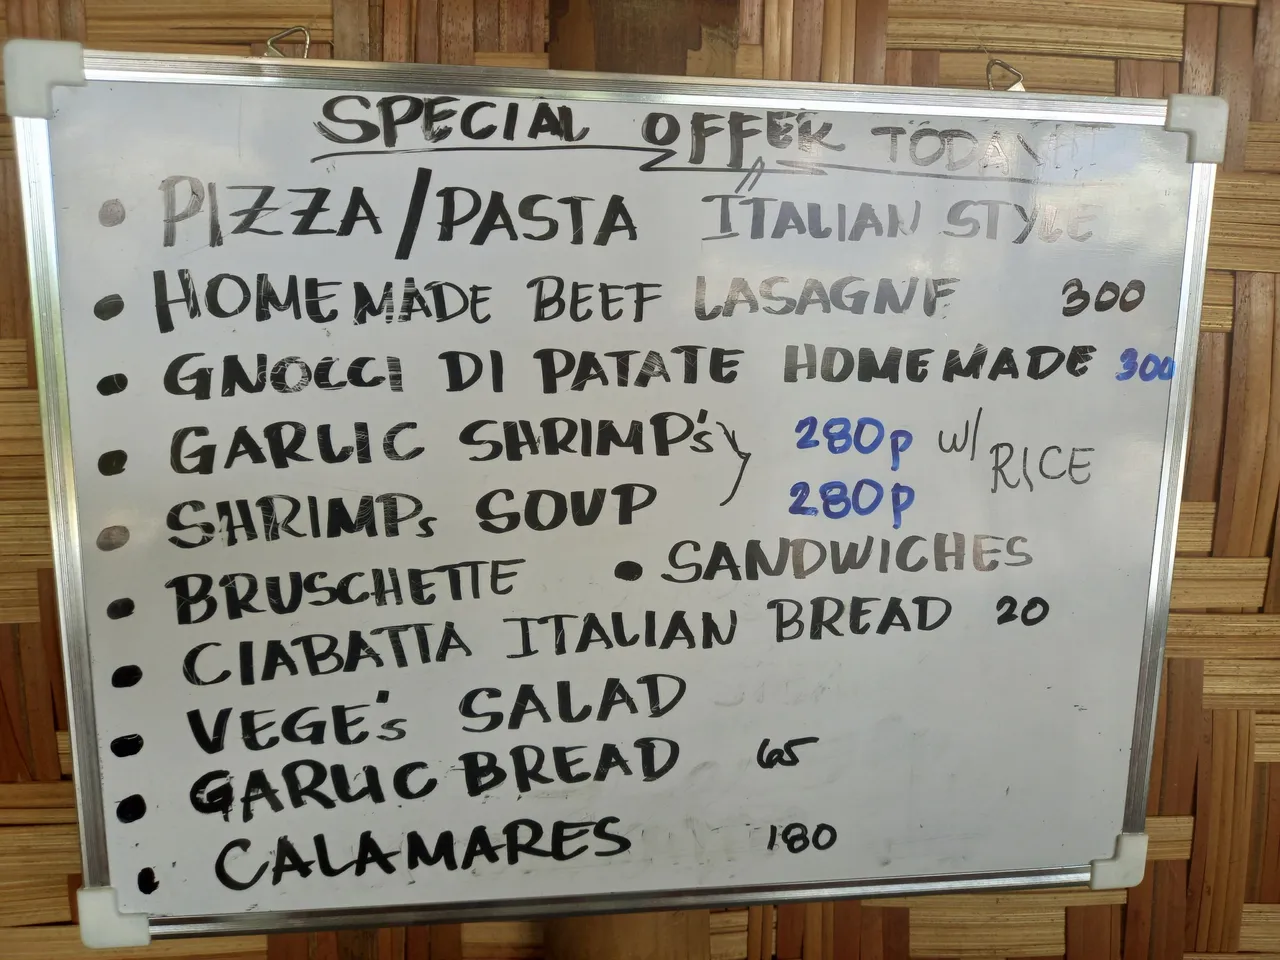 SPECIAL OFFER TODAY!!
• PIZZA/PASTA ITALIAN STYLE
• HOMEMADE BEEF LASAGNE 300
• GNOCCI DI PATATE HOMEMADE 300
• GARLIC SHRIMP's } 280p w/ RICE
• SHRIMPs SOUP 280p
• BRUSCHETTE • SANDWICHES
• CIABATTA ITALIAN BREAD 20
• VEGE's SALAD
• GARLIC BREAD 65
• CALAMARES 180